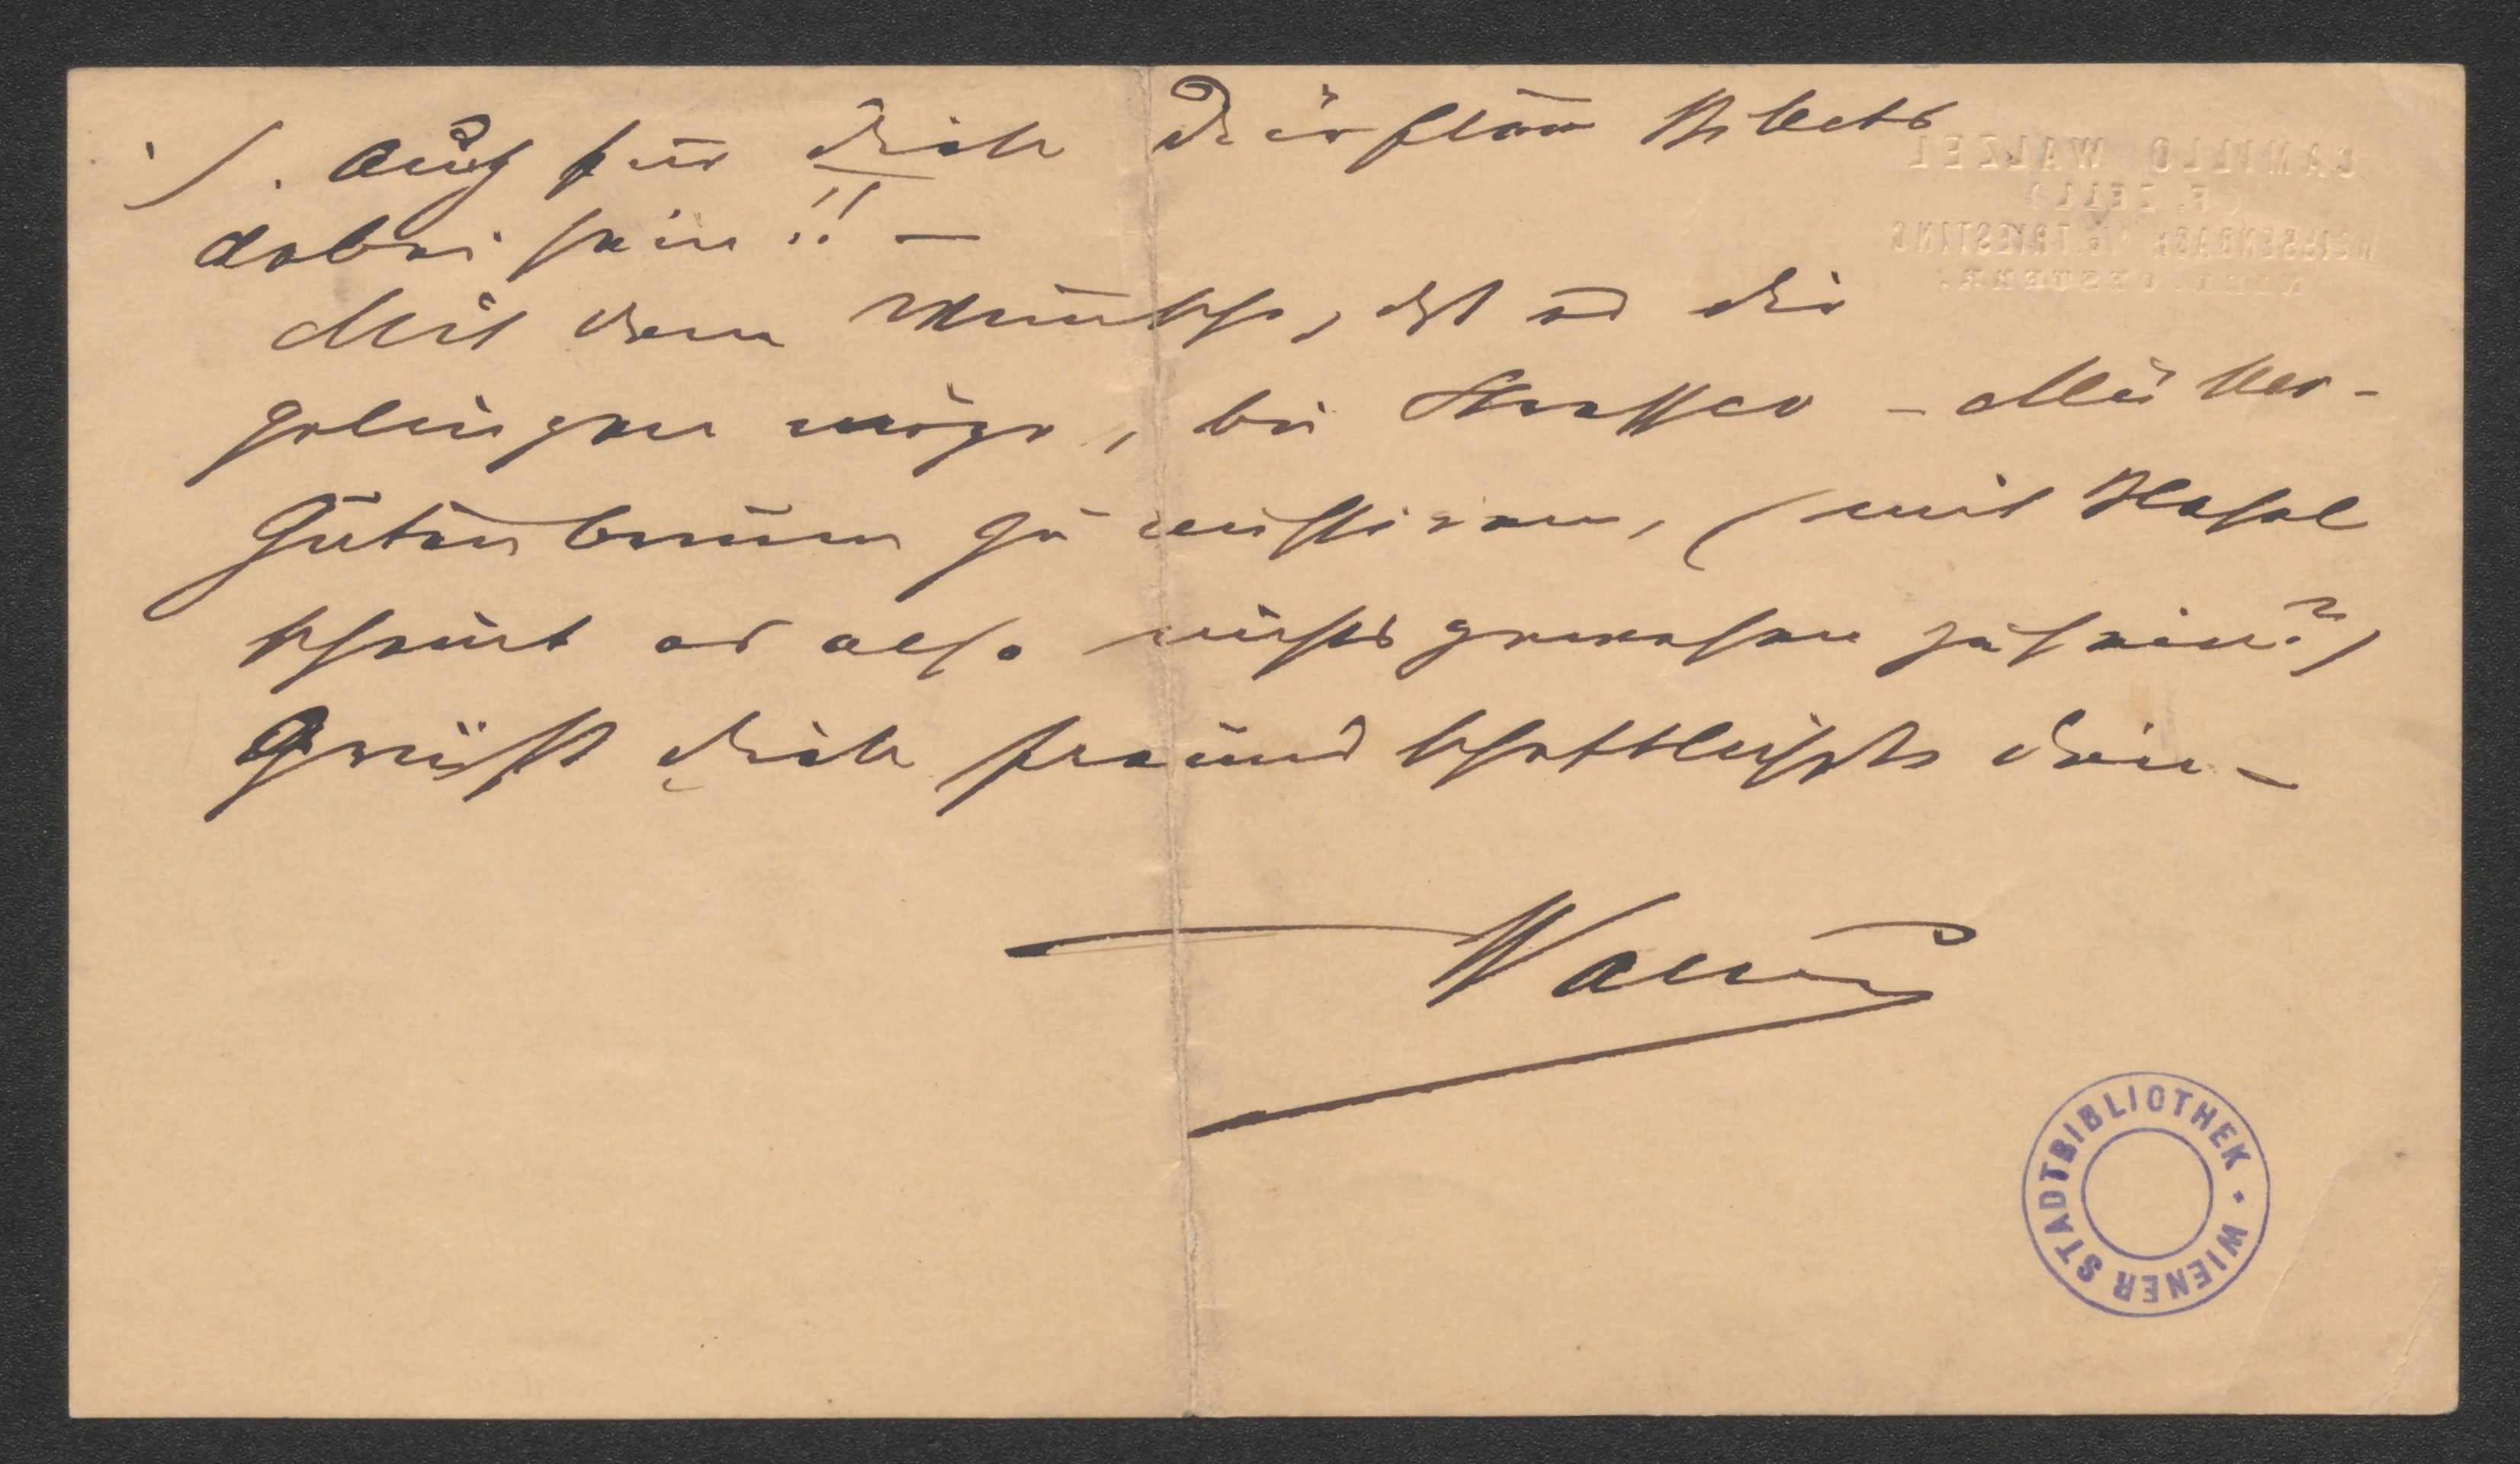 /. Auch für Dich dürften Billets
dabei sein!! —
Mit dem Wunsche, dß es dir
gelingen möge, bei Strasser - Müller-
Gutenbrunn zu reussiren, (mit Hasel
scheint es also nichts gewesen zu sein?)
Grüßt Dich freundschaftlichst dein –
CAMILLO WALZEL
(F. ZELL)
WEISSENBACH a/d. TRIESTING
NIED. OESTERR.
WIENER STADTBIBLIOTHEK